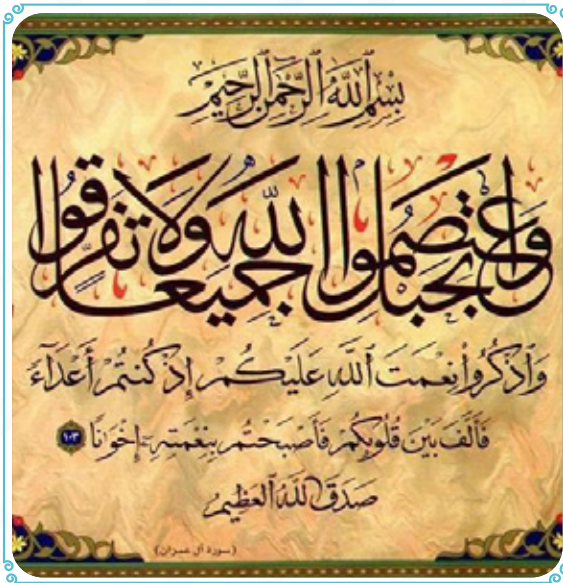 بِسْمِ ٱللَّهِ ٱلرَّحْمَٰنِ ٱلرَّحِيمِ
وَٱعْتَصِمُوا بِحَبْلِ ٱللَّهِ جَمِيعًا وَلَا تَفَرَّقُوا
وَٱذْكُرُوا۟ نِعْمَتَ ٱللَّهِ عَلَيْكُمْ إِذْ كُنتُمْ أَعْدَآءً
فَأَلَّفَ بَيْنَ قُلُوبِكُمْ فَأَصْبَحْتُم بِنِعْمَتِهِۦٓ إِخْوَٰنًا ١٠٣
صَدَقَ ٱللَّهُ ٱلْعَظِيمُ
(سورة آل عمران)